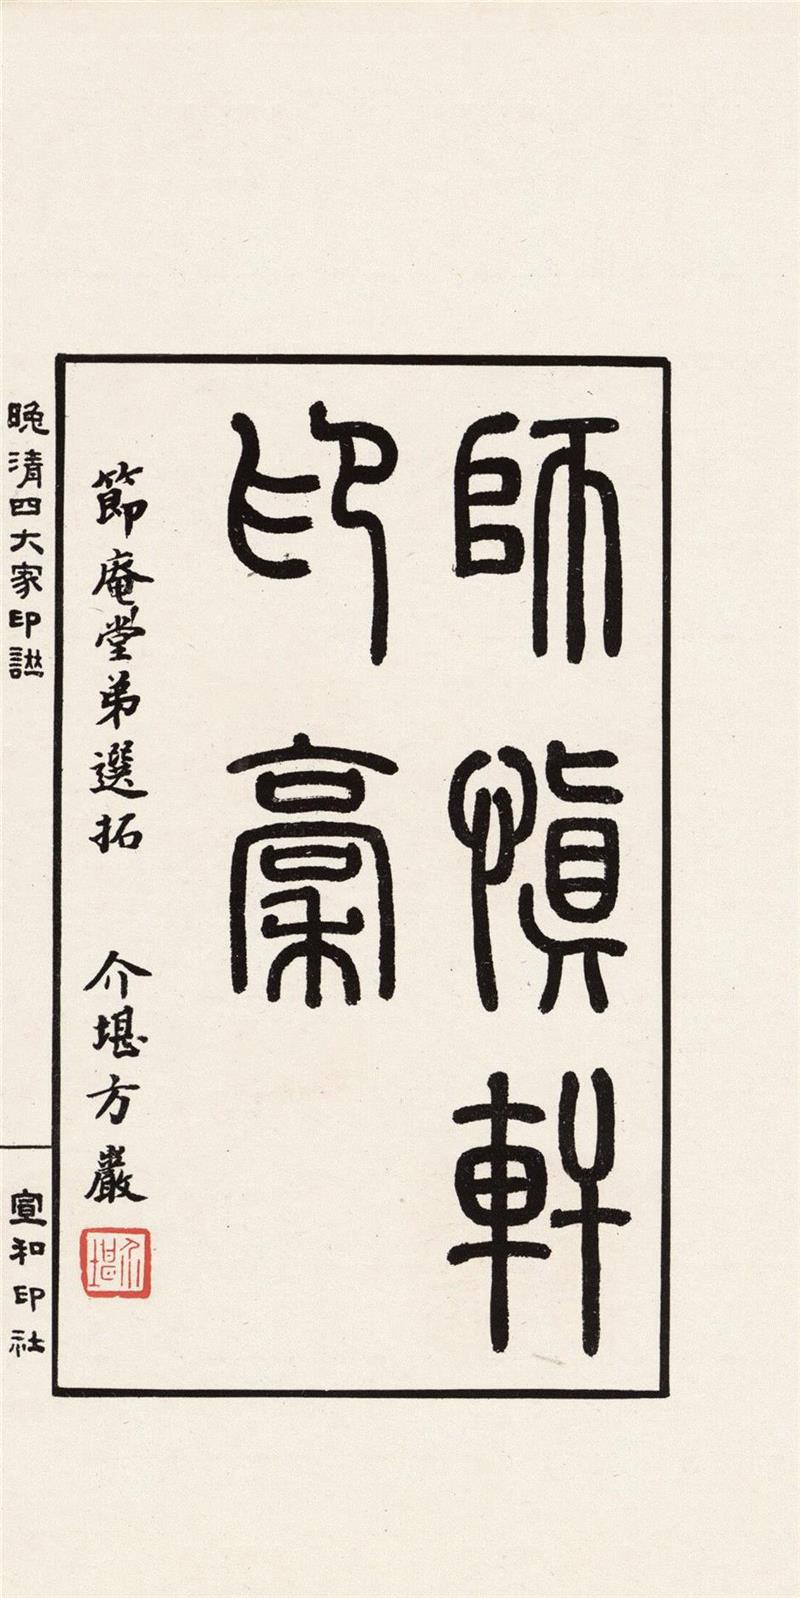 師慎軒
印稾
節庵堂弟選拓　介堪方巖
介堪
晚清四大家印譜
宣和印社